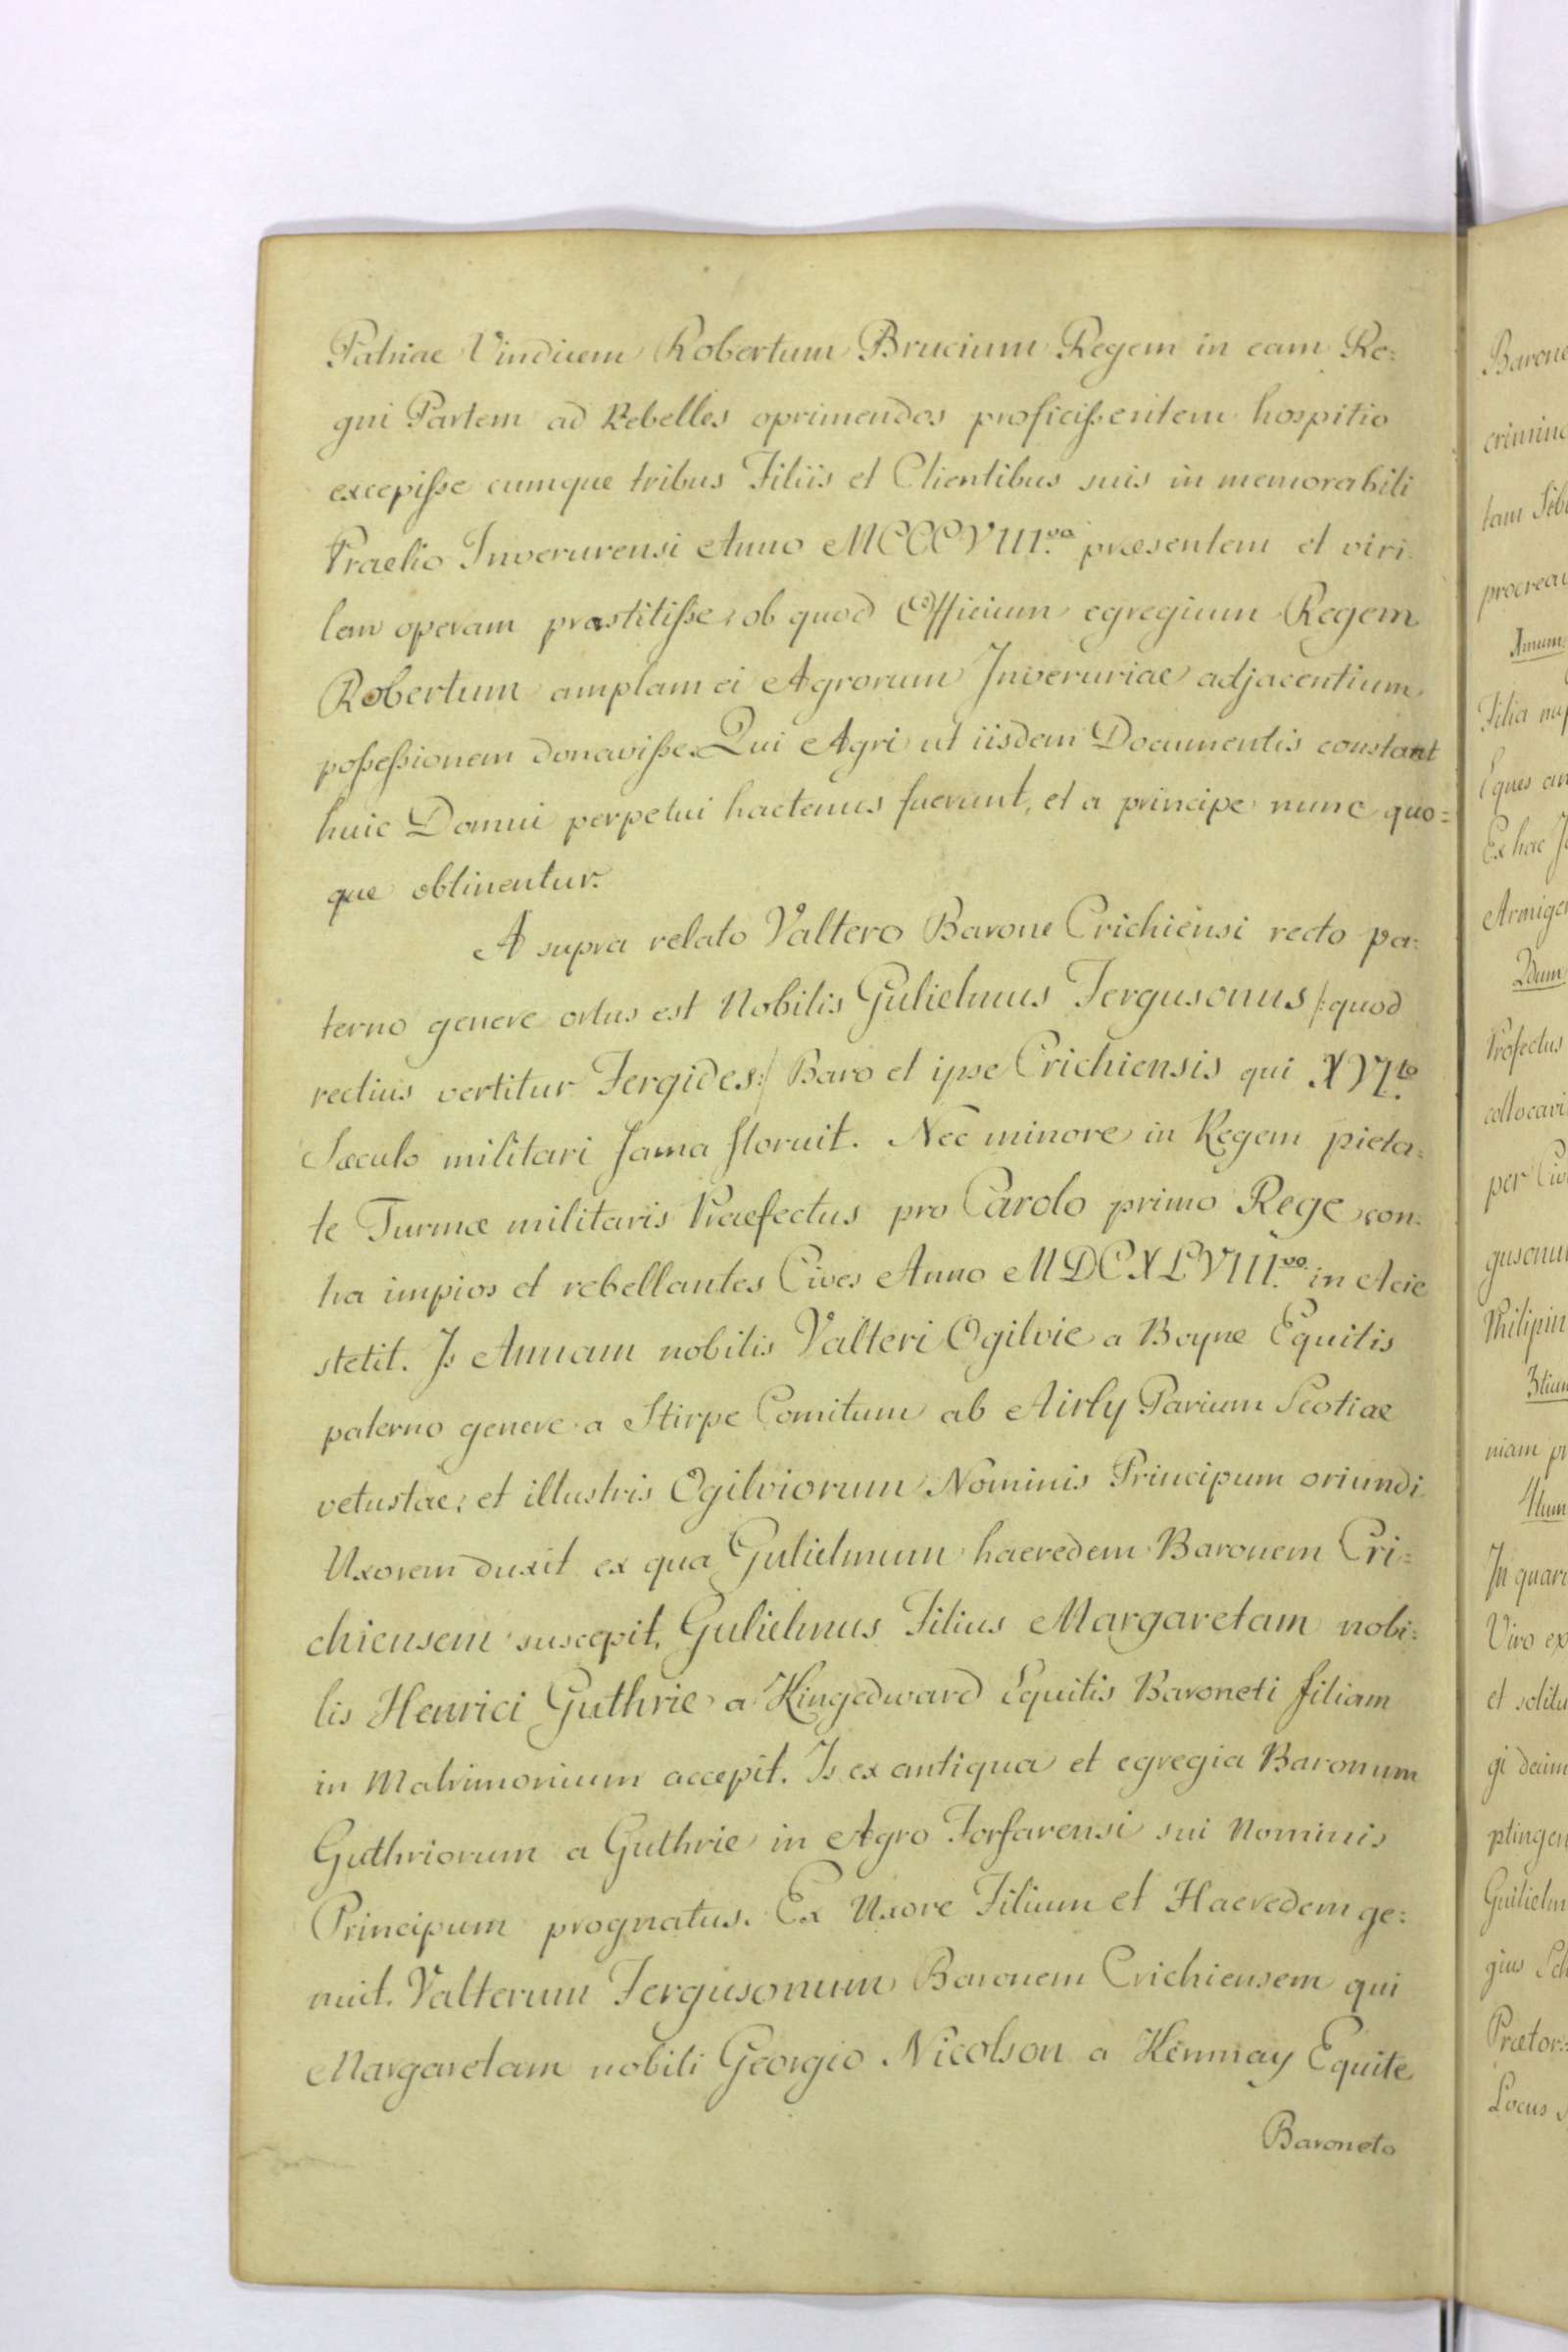 Patriae Vindicem Robertum Brucium Regem in eam Re:
gni Partem ad Rebelles oprimendos proficißentem hospitio
excepiße eumque tribus Filiis et Clientibus suis in memorabili
Praelio Inverurensi Anno MCCCVIII.vo præsentem et viri
lem operam præstitiße; ob quod Officium egregium Regem
Robertum amplam ei Agrorum Inveruriae adjacentium
poßeßionem donaviße. Qui Agri ut iisdem Documentis constant
huic Domui perpetui hactenus fuerunt, et a principe nunc quo=
que obtinentur.
A supra relato Valtero Barone Crichiensi recto pa:
terno genere ortus est Nobilis Gulielmus Fergusonus /:quod
rectius vertitur Fergides:/ Baro et ipse Crichiensis qui XVI.to
Sæculo militari fama floruit. Nec minore in Regem pieta:
te Turmæ militaris Praefectus pro Carolo primo Rege con:
tra impios et rebellantes Cives Anno MDCXLVIII.vo in Acie
stetit. Is Annam nobilis Valteri Ogilvie a Boyne Equitis
paterno genere a Stirpe Comitum ab Airly Parium Scotiae
vetustae, et illustris Ogilviorum Nominis Principum oriundi
Uxorem duxit ex qua Gulielmum haeredem Baronem Cri=
chiensem suscepit, Gulielmus Filius Margaretam nobi:
lis Henrici Guthrie a Kingedward Equitis Baroneti filiam
in Matrimonium accepit. Is ex antiqua et egregia Baronum
Guthriorum a Guthrie in Agro Forfarensi sui Nominis
Principum prognatus. Ex Uxore Filium et Haeredem ge:
nuit. Valterum Fergusonum Baronem Crichiensem qui
Margaretam nobili Georgio Nicolson a Kemnay Equite
Baroneto